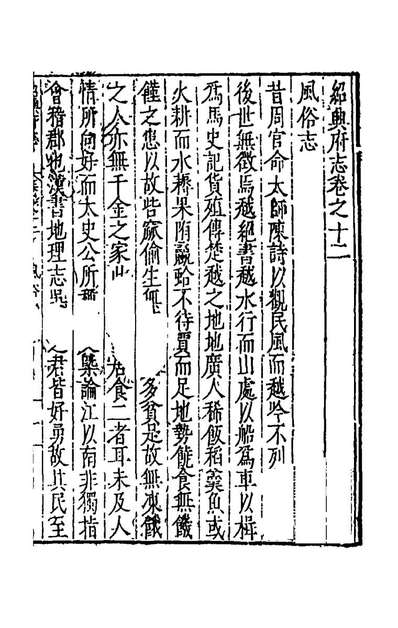 紹興府志卷之十二
風俗志
昔周官命太師陳詩以觀民風而越吟不列
後世無徵焉越絕書越水行而山處以船為車以楫
為馬史記貨殖傳楚越之地地廣人稀飯稻羹魚或
火耕而水耨果隋蠃蛤不待賈而足地勢饒食無饑
饉之患以故呰窳偷生無 多貧是故無凍餓
之人亦無千金之家山 食二者耳未及人
情所向好而太史公所 槩論江以南非獨指
會稽郡也漢書地理志吳 君皆好勇故其民至